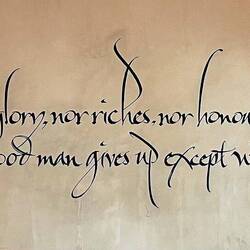 glory, nor riches, nor honou
ood man gives up except w